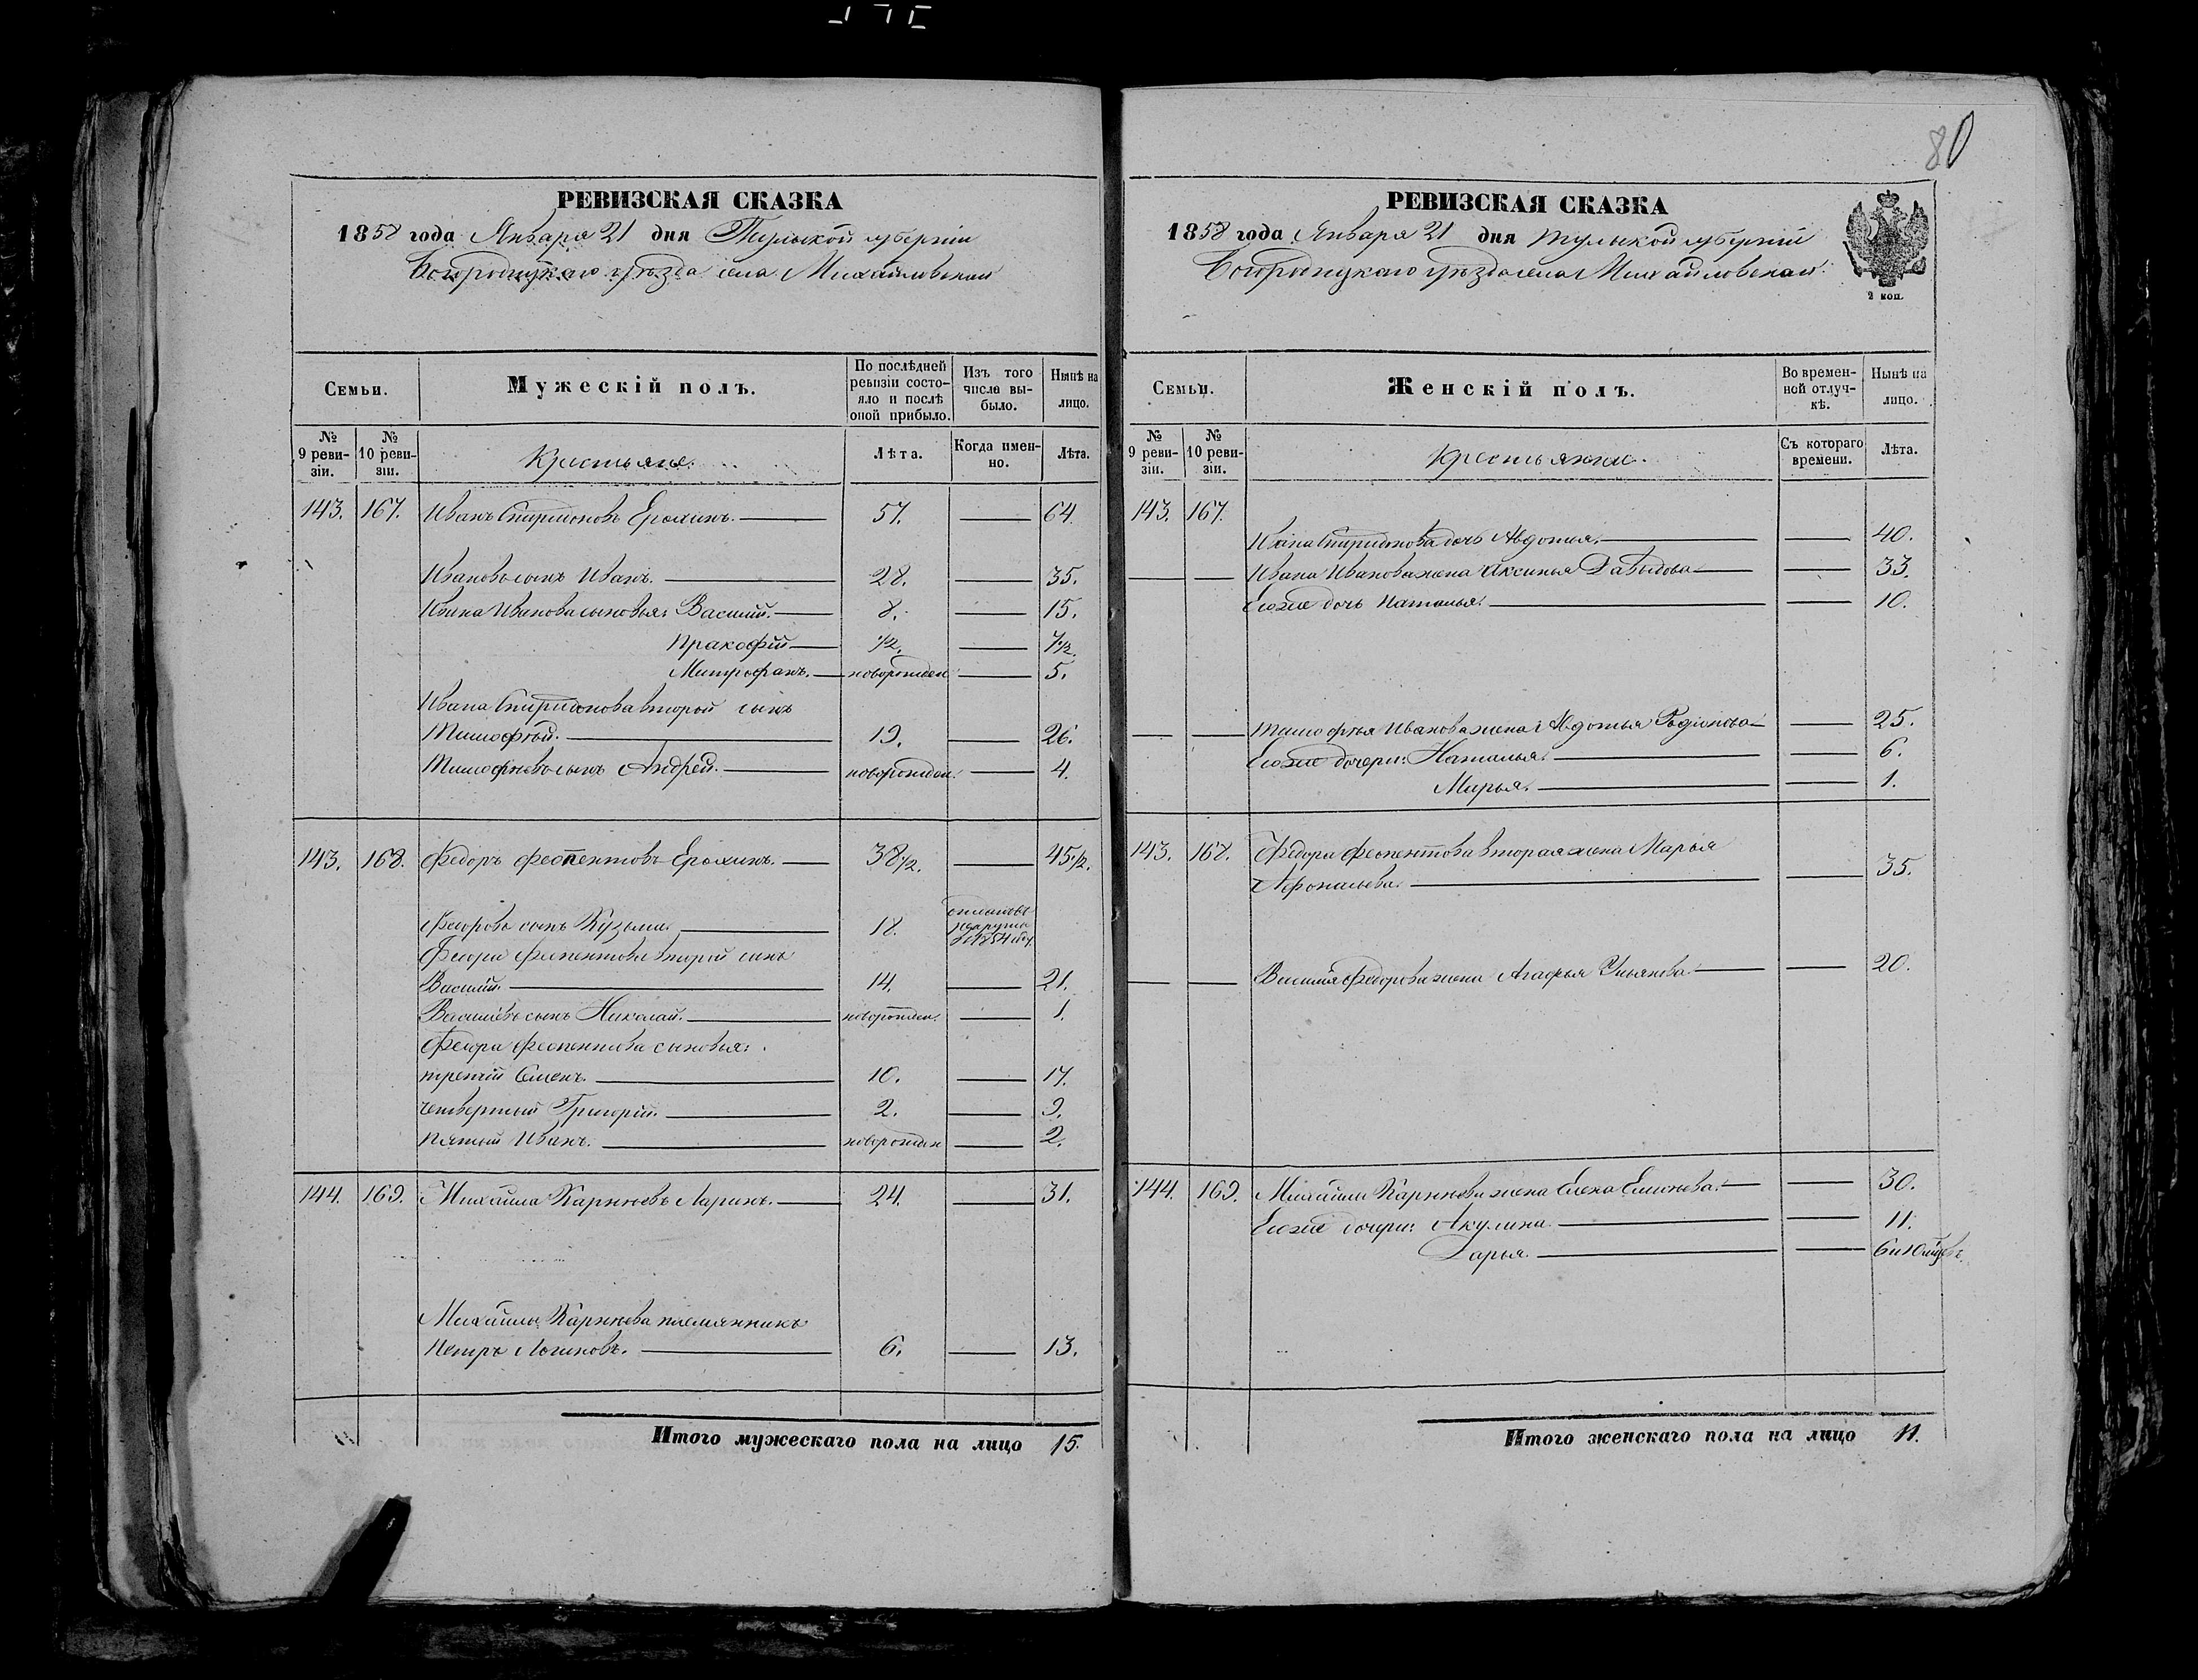 80
РЕВИЗСКАЯ СКАЗКА
1858 года Января 21 дня Тульской губерніи
Богородицкаго уѣзда села Михайловскаго
Семьи.
Мужескій полъ.
По послѣдней ревизіи состояло и послѣ оной прибыло.
Изъ того числа выбыло.
Нынѣ на лицо.
№ 9 ревизіи.
№ 10 ревизіи.
Крестьяне.
Лѣта.
Когда именно.
Лѣта.
143. 167. Иванъ Спиридоновъ Ерохинъ. 57. 64.
Ивановъ сынъ Иванъ. 28. 35.
Ивана Иванова сыновья: Василій. 8. 15.
Пракофій 1/2. 7 1/2.
Митрофанъ. новорожден. 5.
Ивана Спиридонова второй сынъ
Тимофѣй. 19. 26.
Тимофѣевъ сынъ Андрей. новорожден. 4.
143. 168. Федоръ Феопентовъ Ерохинъ. 38 1/2. 45 1/2.
Федоровъ сынъ Кузьма. 18. рекруты в 1854 году.
Федора Феопентова второй сынъ
Василій. 14. 21.
Васильевъ сынъ Николай. новорожден. 1.
Федора Феопентова сыновья:
третій Семенъ. 10. 17.
четвертый Григорій. 2. 9.
пятый Иванъ. новорожден 2.
144. 169. Михайла Карнѣевъ Ларинъ. 24. 31.
Михайлы Карнѣева племянникъ
Петръ Логиновъ. 6. 13.
Итого мужескаго пола на лицо 15.
РЕВИЗСКАЯ СКАЗКА
1858 года Января 21 дня Тульской губерніи
Богородицкаго уѣзда села Михайловскаго.
2 коп.
Семьи.
Женскій полъ.
Во временной отлучкѣ.
Нынѣ на лицо.
№ 9 ревизіи.
№ 10 ревизіи.
Крестьянки.
Съ котораго времени.
Лѣта.
143. 167.
Ивана Спиридонова дочь Авдотья. 40.
Ивана Иванова жена Аксинья Давыдова 33.
Его же дочь Наталья. 10.
Тимофѣя Иванова жена Авдотья Родіонова 25.
Его же дочери: Наталья. 6.
Марья. 1.
143. 168. Федора Феопентова вторая жена Марья
Афонасьева. 35.
Василія Федорова жена Агафья Ульянова. 20.
144. 169. Михайлы Карнѣева жена Елена 30.
Его же дочери: Акулина. 11.
Дарья. 6 и 10
Итого женскаго пола на лицо 11.